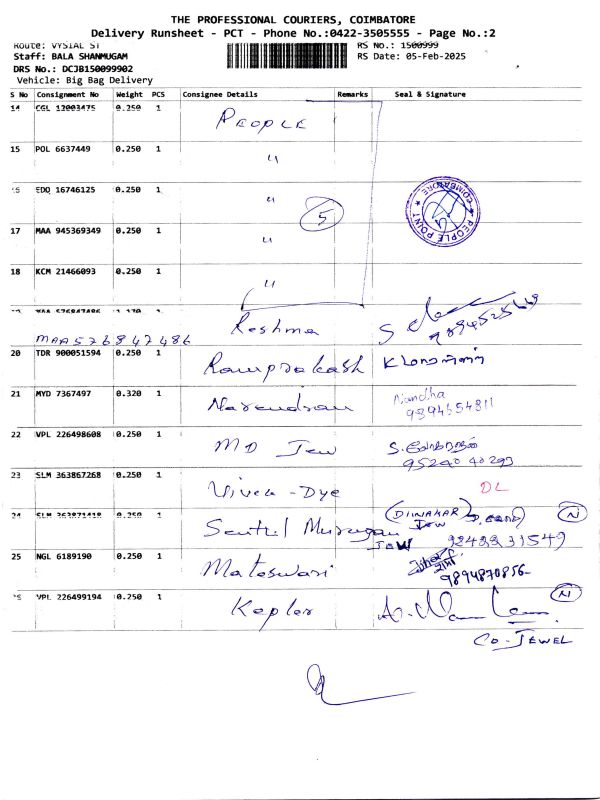 THE PROFESSIONAL COURIERS, COIMBATORE
Delivery Runsheet - PCT - Phone No.:0422-3505555 - Page No.:2
Route: VYSIAL ST RS No.: 1500999
Staff: BALA SHANMUGAM RS Date: 05-Feb-2025
DRS No.: DCJB150099902
Vehicle: Big Bag Delivery
S No Consignment No Weight PCS Consignee Details Remarks Seal & Signature
14 CGL 12003475 0.250 1 PEOPLE
15 POL 6637449 0.250 1 "
16 EDQ 16746125 0.250 1 " 5 PEOPLE POINT * COIMBATORE *
17 MAA 945369349 0.250 1 "
18 KCM 21466093 0.250 1 "
19 MAA 576847486 1.170 1 Reshma
MAA576847486
20 TDR 900051594 0.250 1 Ramprakash
21 MYD 7367497 0.320 1 Narendran Nandha
22 VPL 226498608 0.250 1 MD Jew
95240 40293
23 SLM 363867268 0.250 1 Vivek-Dye DL
24 SLM 363871418 0.250 1 Senthil Murugan JEW (DIINAKAR) JEW N
9242331549
25 NGL 6189190 0.250 1 Mateswari
9894870856
26 VPL 226499194 0.250 1 Kepler N
CO-JEWEL